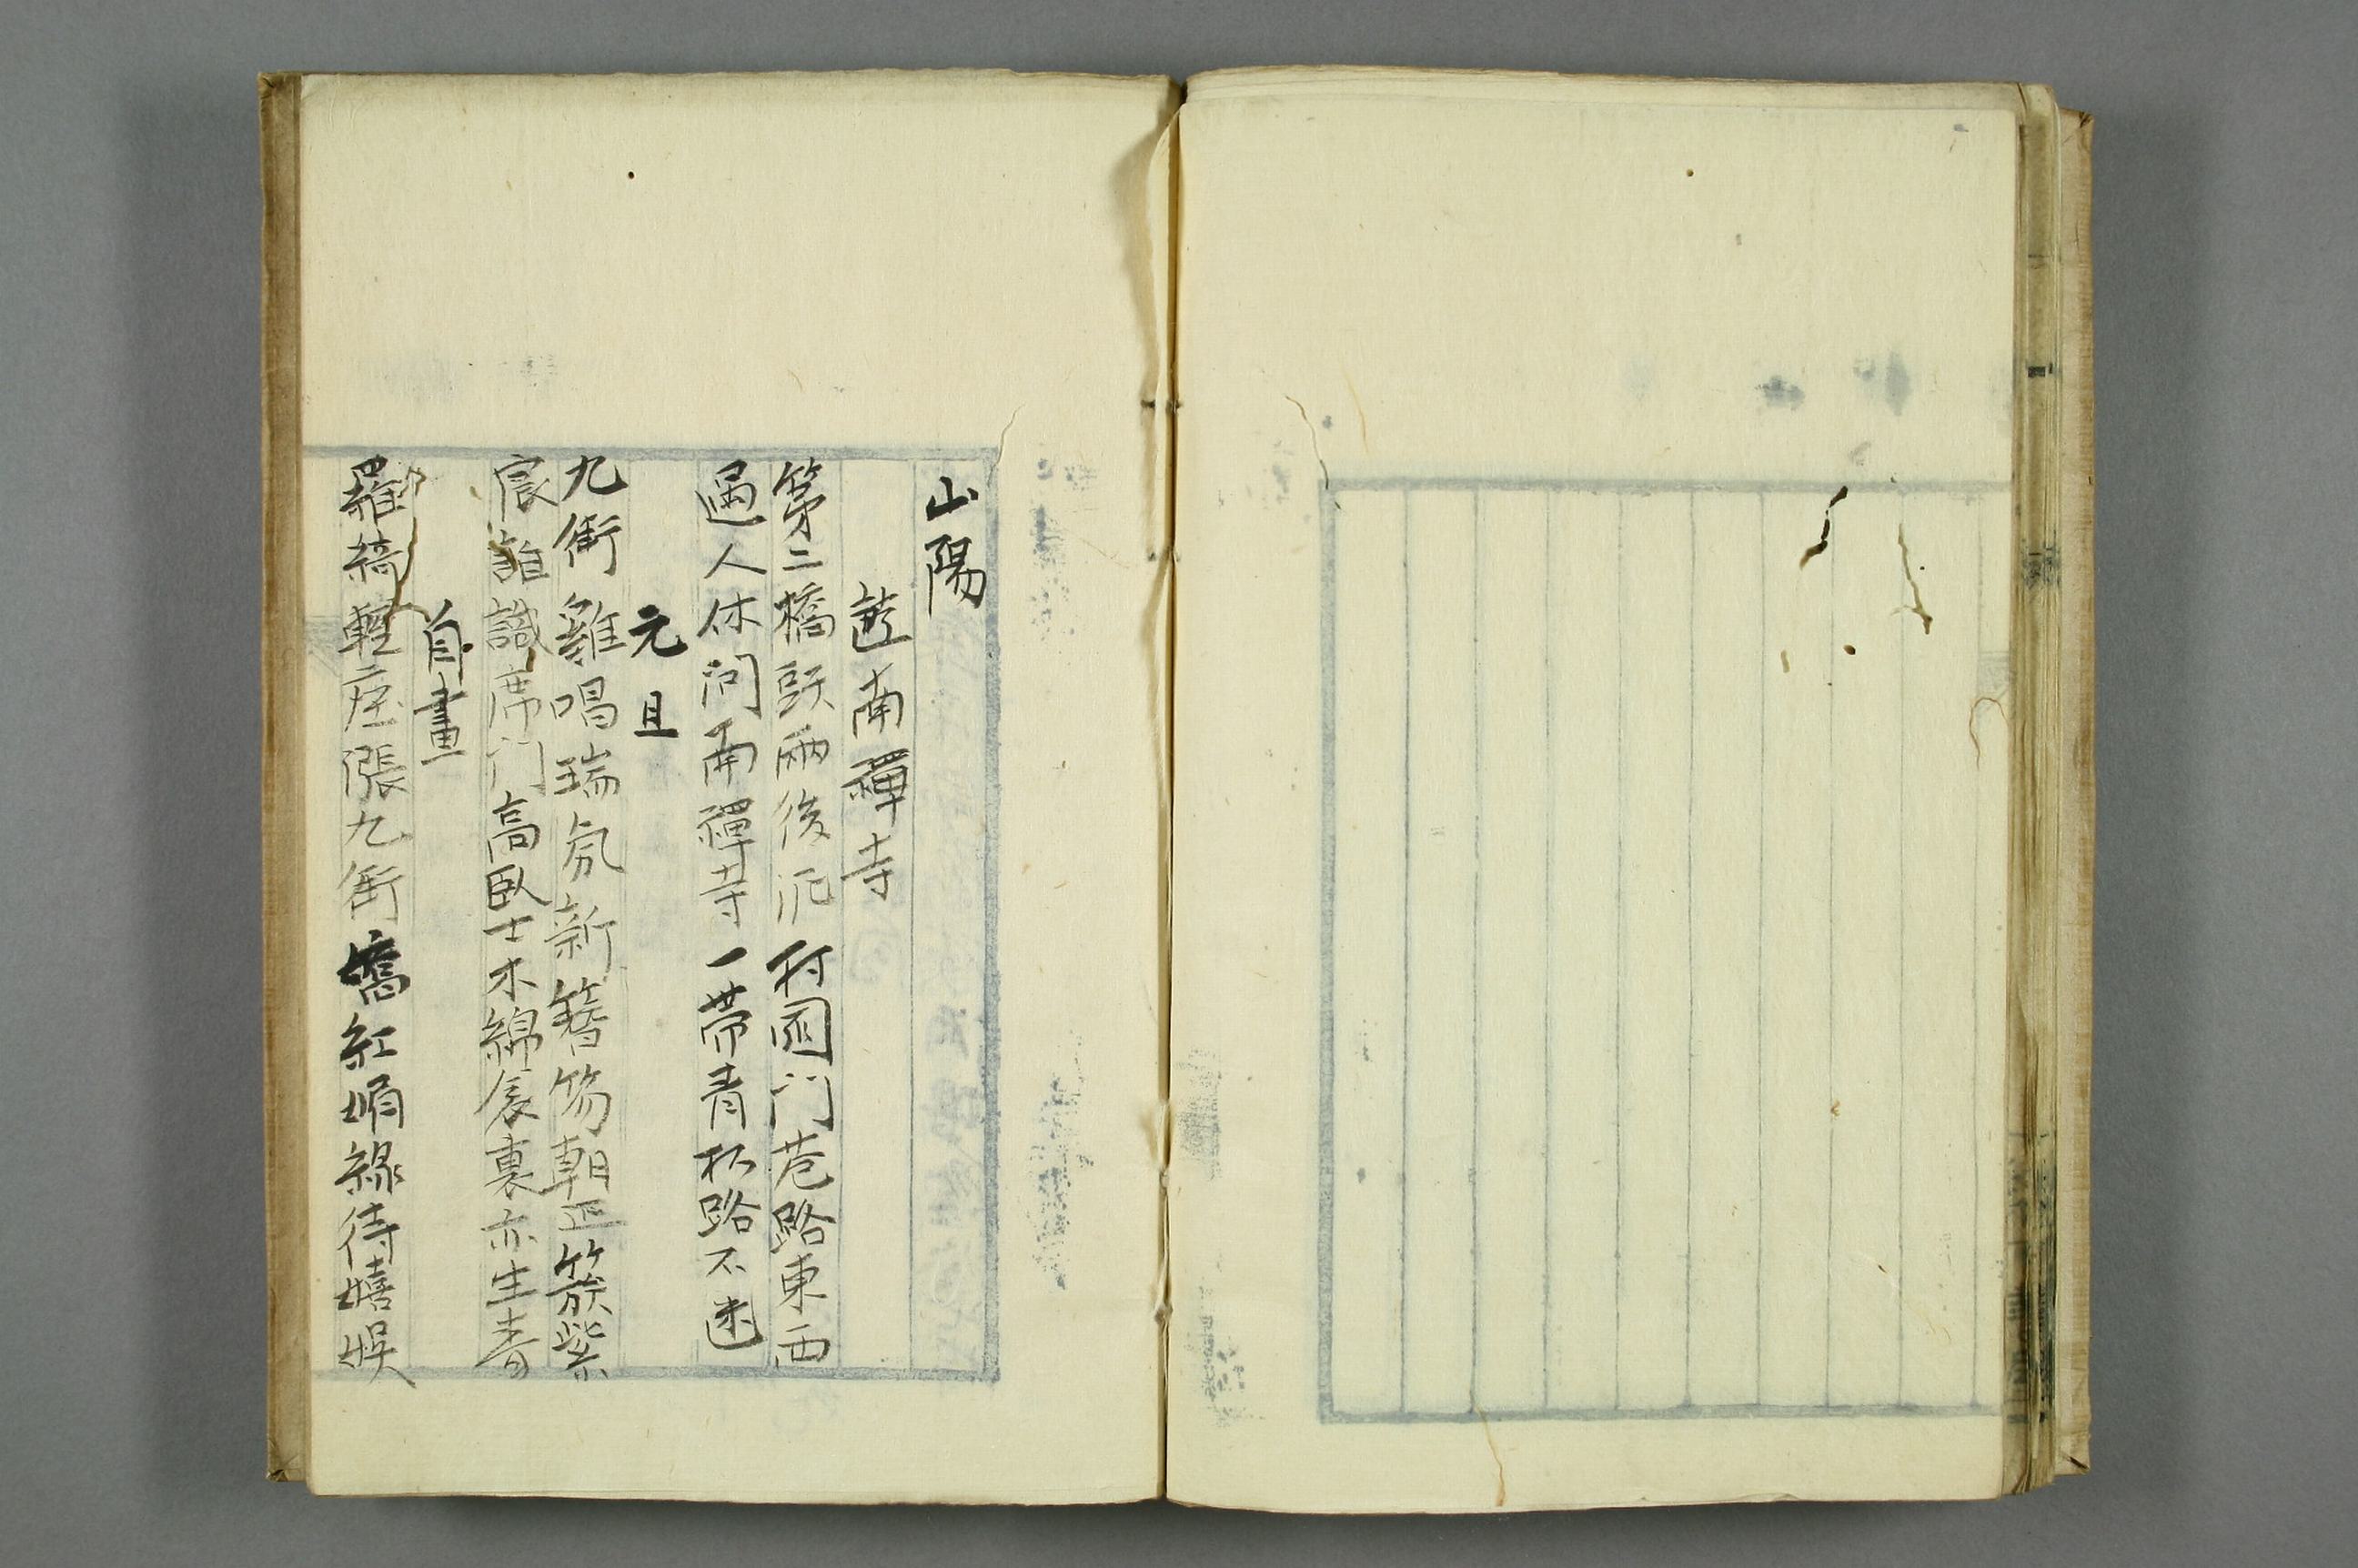 山陽
遊南禪寺
第二橋頭雨後泥 村園門巷路東西
過人休問南禪寺 一帶青松路不迷
元旦
九衢雞唱瑞氛新 簪笏朝正簇紫
宸 誰識席门高臥士 木綿衾裏亦生春
自畫
羅綺輕塵漲九衢 嬌紅娟綠待嬉娛